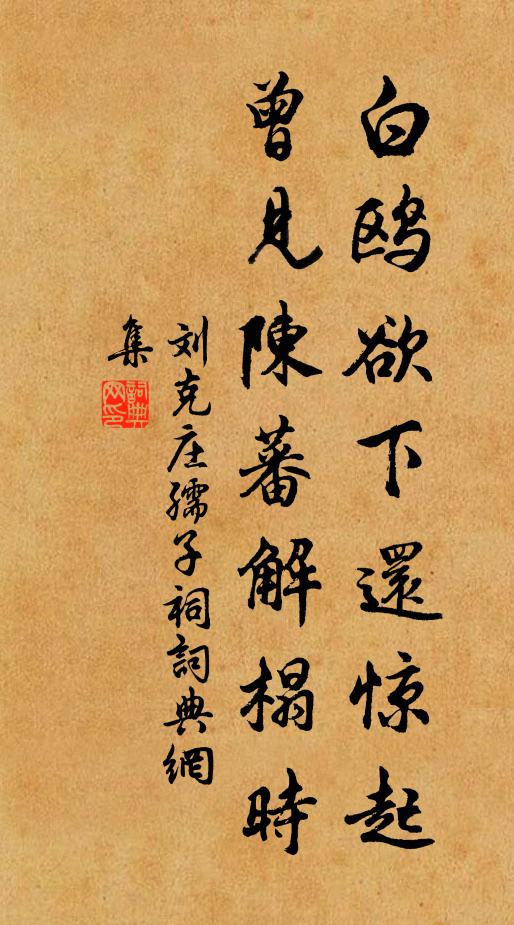 白鸥欲下還惊起
曾見陳蕃解榻時
刘克庄孺子祠詞典網
集
詞典網印